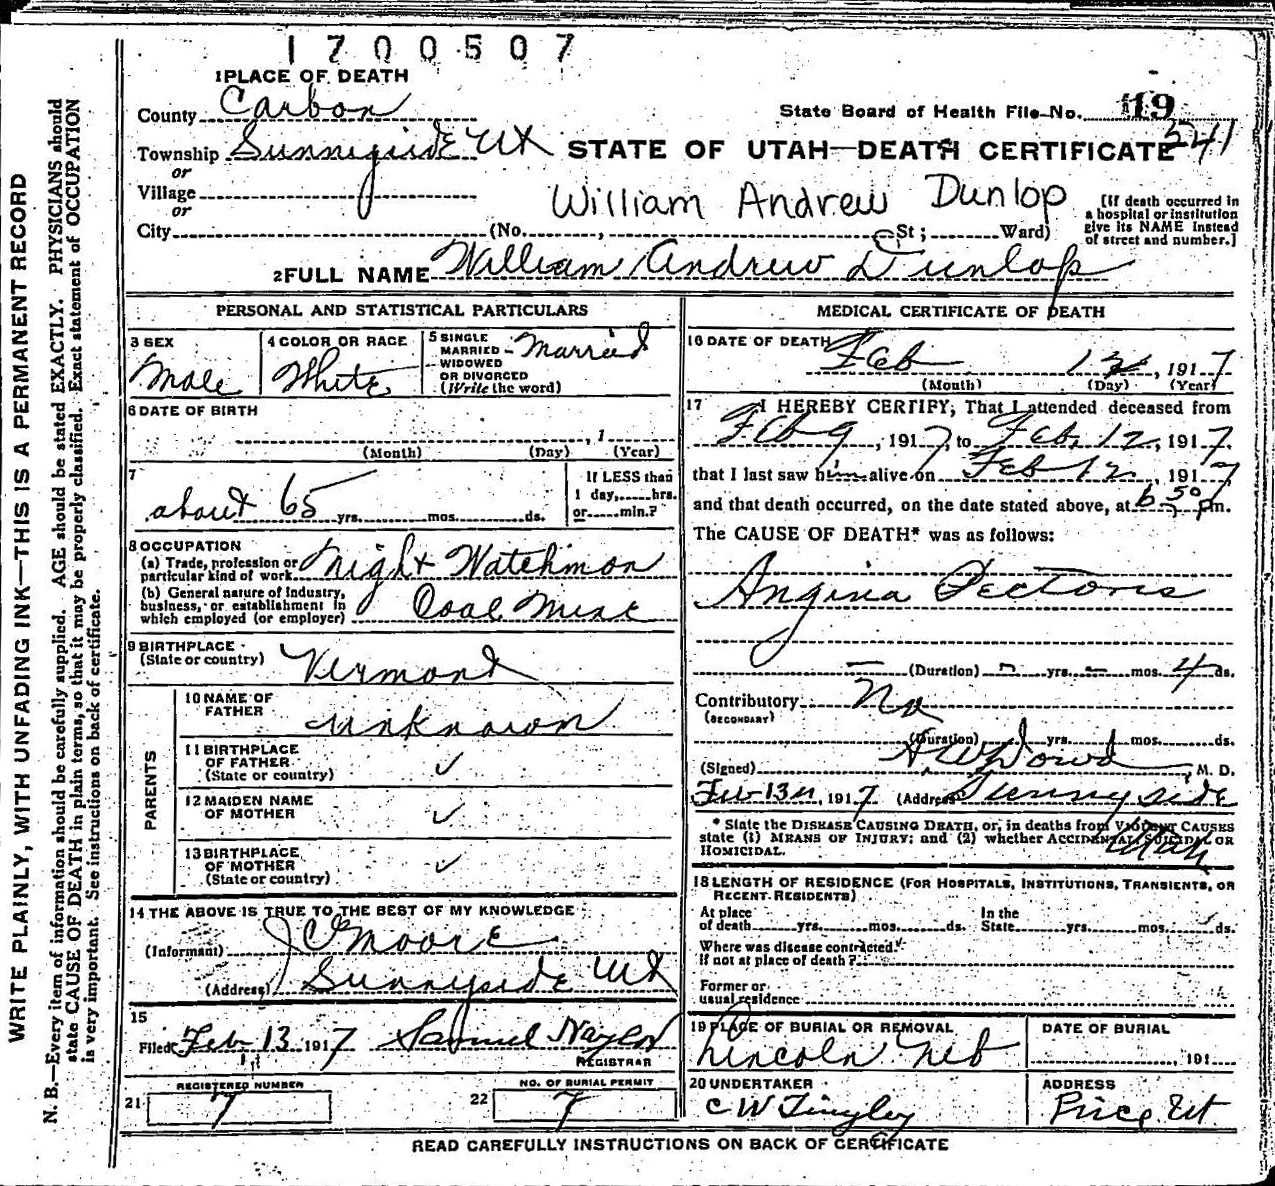 1700507
1 PLACE OF DEATH
County Carbon
State Board of Health File No. 19
541
Township Sunnyside Ut
or
STATE OF UTAH—DEATH CERTIFICATE
Village
or
William Andrew Dunlop
[If death occurred in
a hospital or institution
give its NAME instead
of street and number.]
City (No. , St; Ward)
2 FULL NAME William Andrew Dunlop
PERSONAL AND STATISTICAL PARTICULARS
3 SEX
Male
4 COLOR OR RACE
White
5 SINGLE
MARRIED
WIDOWED
OR DIVORCED
(Write the word)
Married
6 DATE OF BIRTH
, 1
(Month) (Day) (Year)
7
about 65 yrs. mos. ds.
If LESS than
1 day, hrs.
or min.?
8 OCCUPATION
(a) Trade, profession or
particular kind of work Night Watchman
(b) General nature of Industry,
business, or establishment in
which employed (or employer) Coal Mine
9 BIRTHPLACE
(State or country) Vermont
PARENTS
10 NAME OF
FATHER unknown
11 BIRTHPLACE
OF FATHER
(State or country) ✓
12 MAIDEN NAME
OF MOTHER ✓
13 BIRTHPLACE
OF MOTHER
(State or country) ✓
14 THE ABOVE IS TRUE TO THE BEST OF MY KNOWLEDGE
(Informant) J C Moore
(Address) Sunnyside Ut
15
Filed Feb 13 1917 Samuel Naylor
REGISTRAR
REGISTERED NUMBER
21 7
NO. OF BURIAL PERMIT
22 7
MEDICAL CERTIFICATE OF DEATH
16 DATE OF DEATH
Feb 12, 1917
(Month) (Day) (Year)
17 I HEREBY CERTIFY, That I attended deceased from
Feb 9, 1917, to Feb. 12, 1917.
that I last saw him alive on Feb 12, 1917
and that death occurred, on the date stated above, at 6 50 p m.
The CAUSE OF DEATH* was as follows:
Angina Pectoris
(Duration) yrs. mos. 4 ds.
Contributory No
(SECONDARY)
(Duration) yrs. mos. ds.
(Signed) A W Dowd, M. D.
Feb 13, 1917 (Address) Sunnyside
Utah
* State the DISEASE CAUSING DEATH, or, in deaths from VIOLENT CAUSES
state (1) MEANS OF INJURY; and (2) whether ACCIDENTAL, SUICIDAL OR
HOMICIDAL.
18 LENGTH OF RESIDENCE (FOR HOSPITALS, INSTITUTIONS, TRANSIENTS, OR
RECENT RESIDENTS)
At place
of death yrs. mos. ds.
In the
State yrs. mos. ds.
Where was disease contracted
if not at place of death?
Former or
usual residence
19 PLACE OF BURIAL OR REMOVAL
Lincoln Neb
DATE OF BURIAL
, 191
20 UNDERTAKER
C W Tingley
ADDRESS
Price Ut
READ CAREFULLY INSTRUCTIONS ON BACK OF CERTIFICATE
WRITE PLAINLY, WITH UNFADING INK—THIS IS A PERMANENT RECORD
N. B.—Every item of information should be carefully supplied. AGE should be stated EXACTLY. PHYSICIANS should
state CAUSE OF DEATH in plain terms, so that it may be properly classified. Exact statement of OCCUPATION
is very important. See instructions on back of certificate.